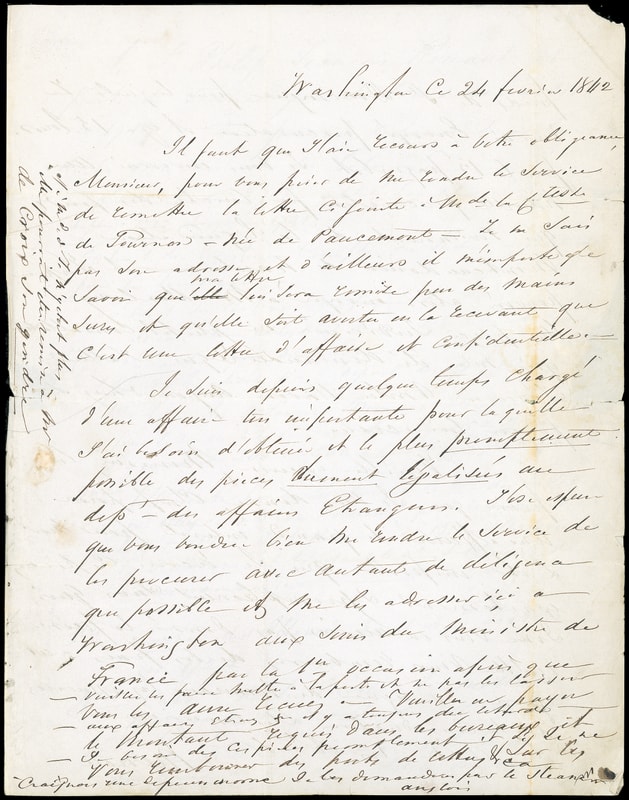 Washington Ce 24 fevrier 1842
Il faut que J'aie recours à votre obligeance,
Monsieur, pour vous prier de me rendre le Service
de remettre la lettre Cijointe à Me de la Ctesse
de Tournon - née de Pancemont - Je ne Sais
pas Son adresse et d'ailleurs il m'importe de
Savoir que elle ma lettre lui Sera remise par des mains
Sures et qu'elle Soit avertie en la recevant que
C'est une lettre d'affaire et Confidentielle. -
Je Suis depuis quelque temps Chargé
d'une affaire très importante pour laquelle
J'ai besoin d'obtenir et le plus promptement
possible des pieces duement légalisées au
dept - des affaires Etrangeres. J'ose esperer
que vous voudrez bien me rendre le Service de
les procurer avec autant de diligence
que possible & me les adresser ici, à
Washington aux Soins du Ministre de
France par la 1re occasion après que
vous les aurez reçues - Veuillez en payer
le Montant requis dans les bureaux et
Vous rembourser des ports de lettres &
- Veuillez les faire mettre à la poste et ne pas les laisser
- aux affaires etrang il y a toujours des
- J'ai besoin des Ces pieces promptement Je ne
Craignons une depense de les demander par le Steamer
anglais
Si elle n'y etait plus
à Mr
de Croix Son gendre